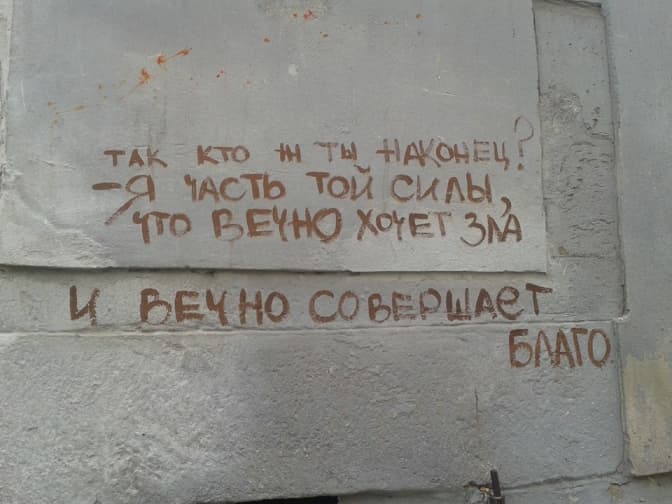 ТАК КТО Ж ТЫ НАКОНЕЦ?
-Я ЧАСТЬ ТОЙ СИЛЫ,
ЧТО ВЕЧНО ХОЧЕТ ЗЛА
И ВЕЧНО СОВЕРШАЕТ
БЛАГО